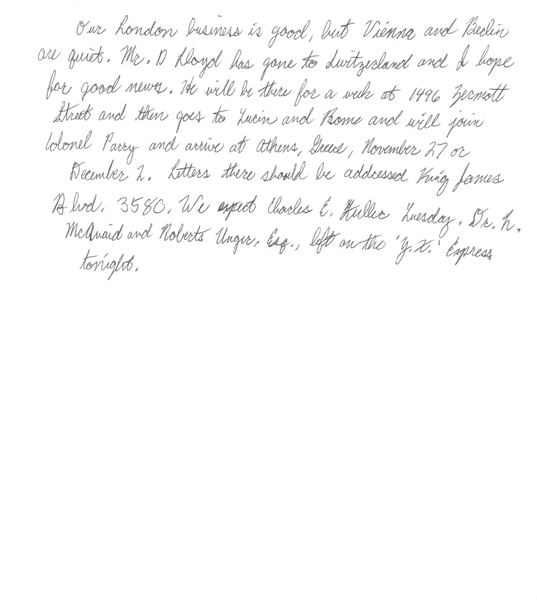 Our London business is good, but Vienna and Berlin
are quiet. Mr. D Lloyd has gone to Switzerland and I hope
for good news. He will be there for a week at 1496 Zermott
Street and then goes to Turin and Rome and will join
Colonel Parry and arrive at Athens, Greece, November 27 or
December 2. Letters there should be addressed King James
Blvd. 3580. We expect Charles E. Fuller Tuesday. Dr. L.
McQuaid and Roberts Unger, Esq., left on the 'Y.X.' Express
tonight.